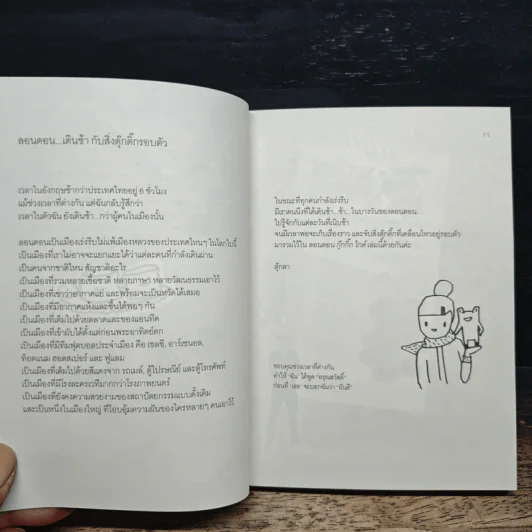 ลอนดอน...เดินช้า กับสิ่งตุ๊กติ๊กรอบตัว
เวลาในอังกฤษช้ากว่าประเทศไทยอยู่ 6 ชั่วโมง
แม้ช่วงเวลาที่ต่างกัน แต่ฉันกลับรู้สึกว่า
เวลาในตัวฉัน ยังเดินช้า...กว่าผู้คนในเมืองนั้น
ลอนดอนเป็นเมืองเร่งรีบไม่แพ้เมืองหลวงของประเทศไหนๆ ในโลกใบนี้
เป็นเมืองที่เราไม่อาจจะแยกแยะได้ว่าแต่ละคนที่กำลังเดินผ่าน
เป็นคนจากชาติไหน สัญชาติอะไร
เป็นเมืองที่รวมหลายเชื้อชาติ หลายภาษา หลายวัฒนธรรมเอาไว้
เป็นเมืองที่เขาว่าอากาศแย่ และพร้อมจะเป็นหวัดได้เสมอ
เป็นเมืองที่มีอากาศแห้งและชื้นได้พอๆ กัน
เป็นเมืองที่เต็มไปด้วยตลาดและของแอนทีค
เป็นเมืองที่เข้าผับได้ตั้งแต่ก่อนพระอาทิตย์ตก
เป็นเมืองที่มีทีมฟุตบอลประจำเมือง คือ เชลซี, อาร์เซนอล,
ท็อตแนม ฮอตสเปอร์ และ ฟูแลม
เป็นเมืองที่เต็มไปด้วยสีแดงจาก รถเมล์, ตู้ไปรษณีย์ และตู้โทรศัพท์
เป็นเมืองที่มีโรงละครเวทีมากกว่าโรงภาพยนตร์
เป็นเมืองที่ยังคงความสวยงามของสถาปัตยกรรมแบบดั้งเดิม
และเป็นหนึ่งในเมืองใหญ่ ที่โอบอุ้มความฝันของใครหลายๆ คนเอาไว้
11
ในขณะที่ทุกคนกำลังเร่งรีบ
มีเราคนนึงที่ได้เดินช้า...ช้า...ในบางวันของลอนดอน...
ไปรู้จักกับแต่ละวันที่เนิบช้า
จนมีเวลาพอจะเก็บเรื่องราว และจับสิ่งตุ๊กติ๊กที่เคลื่อนไหวอยู่รอบตัว
มารวมไว้ใน ลอนดอน กุ๊กกิ๊ก ไกด์ เล่มนี้ด้วยกันค่ะ
ตุ๊กตา
ขอบคุณช่วงเวลาที่ต่างกัน
ทำให้ "ฉัน" ได้พูด "อรุณสวัสดิ์"
ก่อนที่ "เธอ" จะบอกฉันว่า "ฝันดี"